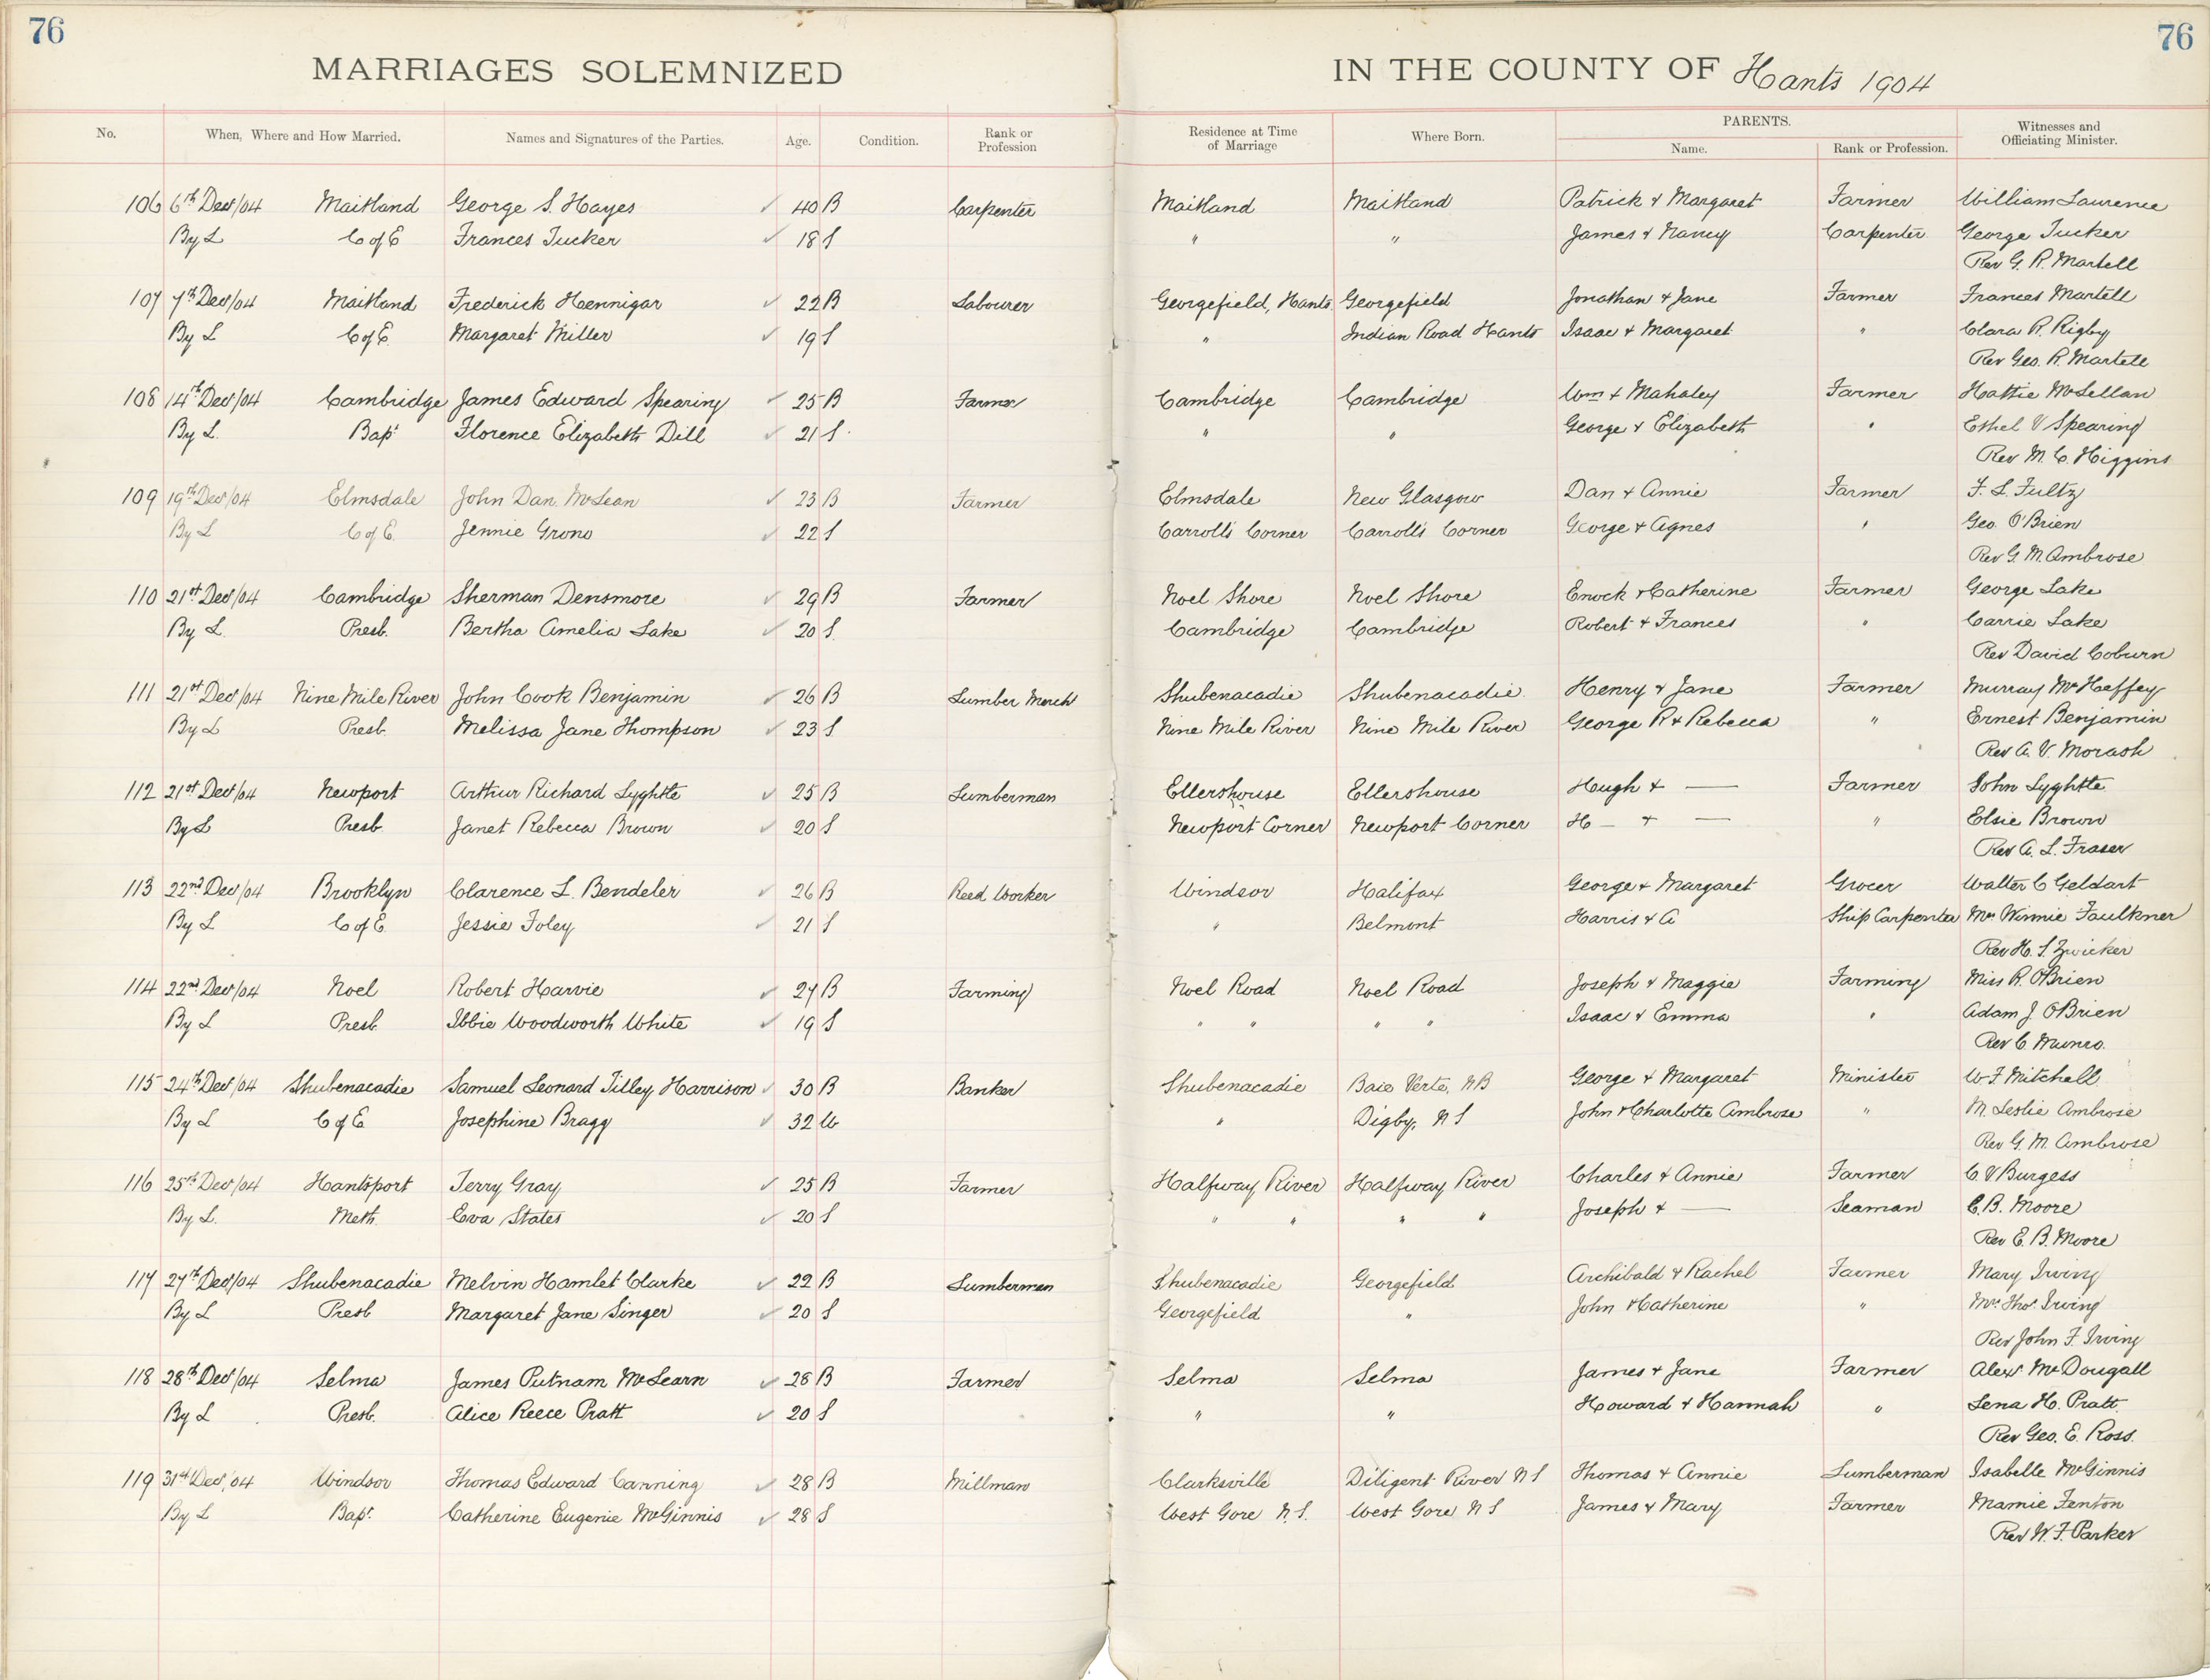 76
76
MARRIAGES SOLEMNIZED IN THE COUNTY OF Hants 1904
No. When, Where and How Married. Names and Signatures of the Parties. Age. Condition. Rank or Profession Residence at Time of Marriage Where Born. PARENTS. Name. Rank or Profession. Witnesses and Officiating Minister.
106 6th Dec/04 Maitland George S. Hayes 40 B Carpenter Maitland Maitland Patrick & Margaret Farmer William Laurence
By L C of E Frances Tucker 18 S " " James & Nancy Carpenter George Tucker
Rev G. R. Martell
107 7th Dec/04 Maitland Frederick Hennigar 22 B Labourer Georgefield, Hants. Georgefield Jonathan & Jane Farmer Frances Martell
By L C of E. Margaret Miller 19 S " Indian Road Hants Isaac & Margaret " Clara R. Rigby
Rev Geo. R. Martell
108 14th Dec/04 Cambridge James Edward Spearing 25 B Farmer Cambridge Cambridge Wm & Mahaley Farmer Hattie McLellan
By L. Bapt Florence Elizabeth Dill 21 S. " " George & Elizabeth " Ethel V Spearing
Rev M. C. Higgins
109 19th Dec/04 Elmsdale John Dan. McLean 23 B Farmer Elmsdale New Glasgow Dan & Annie Farmer F. L. Fultz
By L C of E. Jennie Grono 22 S Carroll's Corner Carroll's Corner George & Agnes " Geo. O'Brien
Rev G. M. Ambrose
110 21st Dec/04 Cambridge Sherman Densmore 29 B Farmer Noel Shore Noel Shore Enock & Catherine Farmer George Lake
By L. Presb. Bertha Amelia Lake 20 S. Cambridge Cambridge Robert & Frances " Carrie Lake
Rev David Coburn
111 21st Dec/04 Nine Mile River John Cook Benjamin 26 B Lumber Merch Shubenacadie Shubenacadie Henry & Jane Farmer Murray McHeffey
By L Presb. Melissa Jane Thompson 23 S Nine Mile River Nine Mile River George R & Rebecca " Ernest Benjamin
Rev A. V. Morash
112 21st Dec/04 Newport Arthur Richard Lyghtle 25 B Lumberman Ellershouse Ellershouse Hugh & — Farmer John Lyghtle
By L Presb. Janet Rebecca Brown 20 S Newport Corner Newport Corner H — & — " Elsie Brown
Rev A. L. Fraser
113 22nd Dec/04 Brooklyn Clarence L. Bendeler 26 B Reed Worker Windsor Halifax George & Margaret Grocer Walter C Geldart
By L C of E Jessie Foley 21 S " Belmont Harris & A Ship Carpenter Mrs Winnie Faulkner
Rev H. S. Zwicker
114 22nd Dec/04 Noel Robert Harvie 27 B Farming Noel Road Noel Road Joseph & Maggie Farming Miss R. O'Brien
By L Presb. Ibbie Woodworth White 19 S " " " " Isaac & Emma " Adam J. O'Brien
Rev C. Munro.
115 24th Dec/04 Shubenacadie Samuel Leonard Tilley Harrison 30 B Banker Shubenacadie Baie Verte, NB George & Margaret Minister W F Mitchell
By L C of E Josephine Bragg 32 W " Digby, N S John & Charlotte Ambrose " M. Leslie Ambrose
Rev G. M. Ambrose
116 25th Dec/04 Hantsport Terry Gray 25 B Farmer Halfway River Halfway River Charles & Annie Farmer C. V Burgess
By L. Meth. Eva States 20 S " " " " Joseph & — Seaman C. B. Moore
Rev E. B. Moore
117 27th Dec/04 Shubenacadie Melvin Hamlet Clarke 22 B Lumberman Shubenacadie Georgefield Archibald & Rachel Farmer Mary Irving
By L Presb Margaret Jane Singer 20 S Georgefield " John & Catherine " Mrs. Thos. Irving
Rev John F. Irving
118 28th Dec/04 Selma James Putnam McLearn 28 B Farmer Selma Selma James & Jane Farmer Alex McDougall
By L Presb. Alice Reece Pratt 20 S " " Howard & Hannah " Lena H. Pratt.
Rev Geo. E. Ross.
119 31st Dec/04 Windsor Thomas Edward Canning 28 B Millman Clarksville Diligent River N S Thomas & Annie Lumberman Isabelle McGinnis
By L Bapt. Catherine Eugenie McGinnis 28 S West Gore N. S. West Gore, N S James & Mary Farmer Mamie Fenton
Rev W. F. Parker